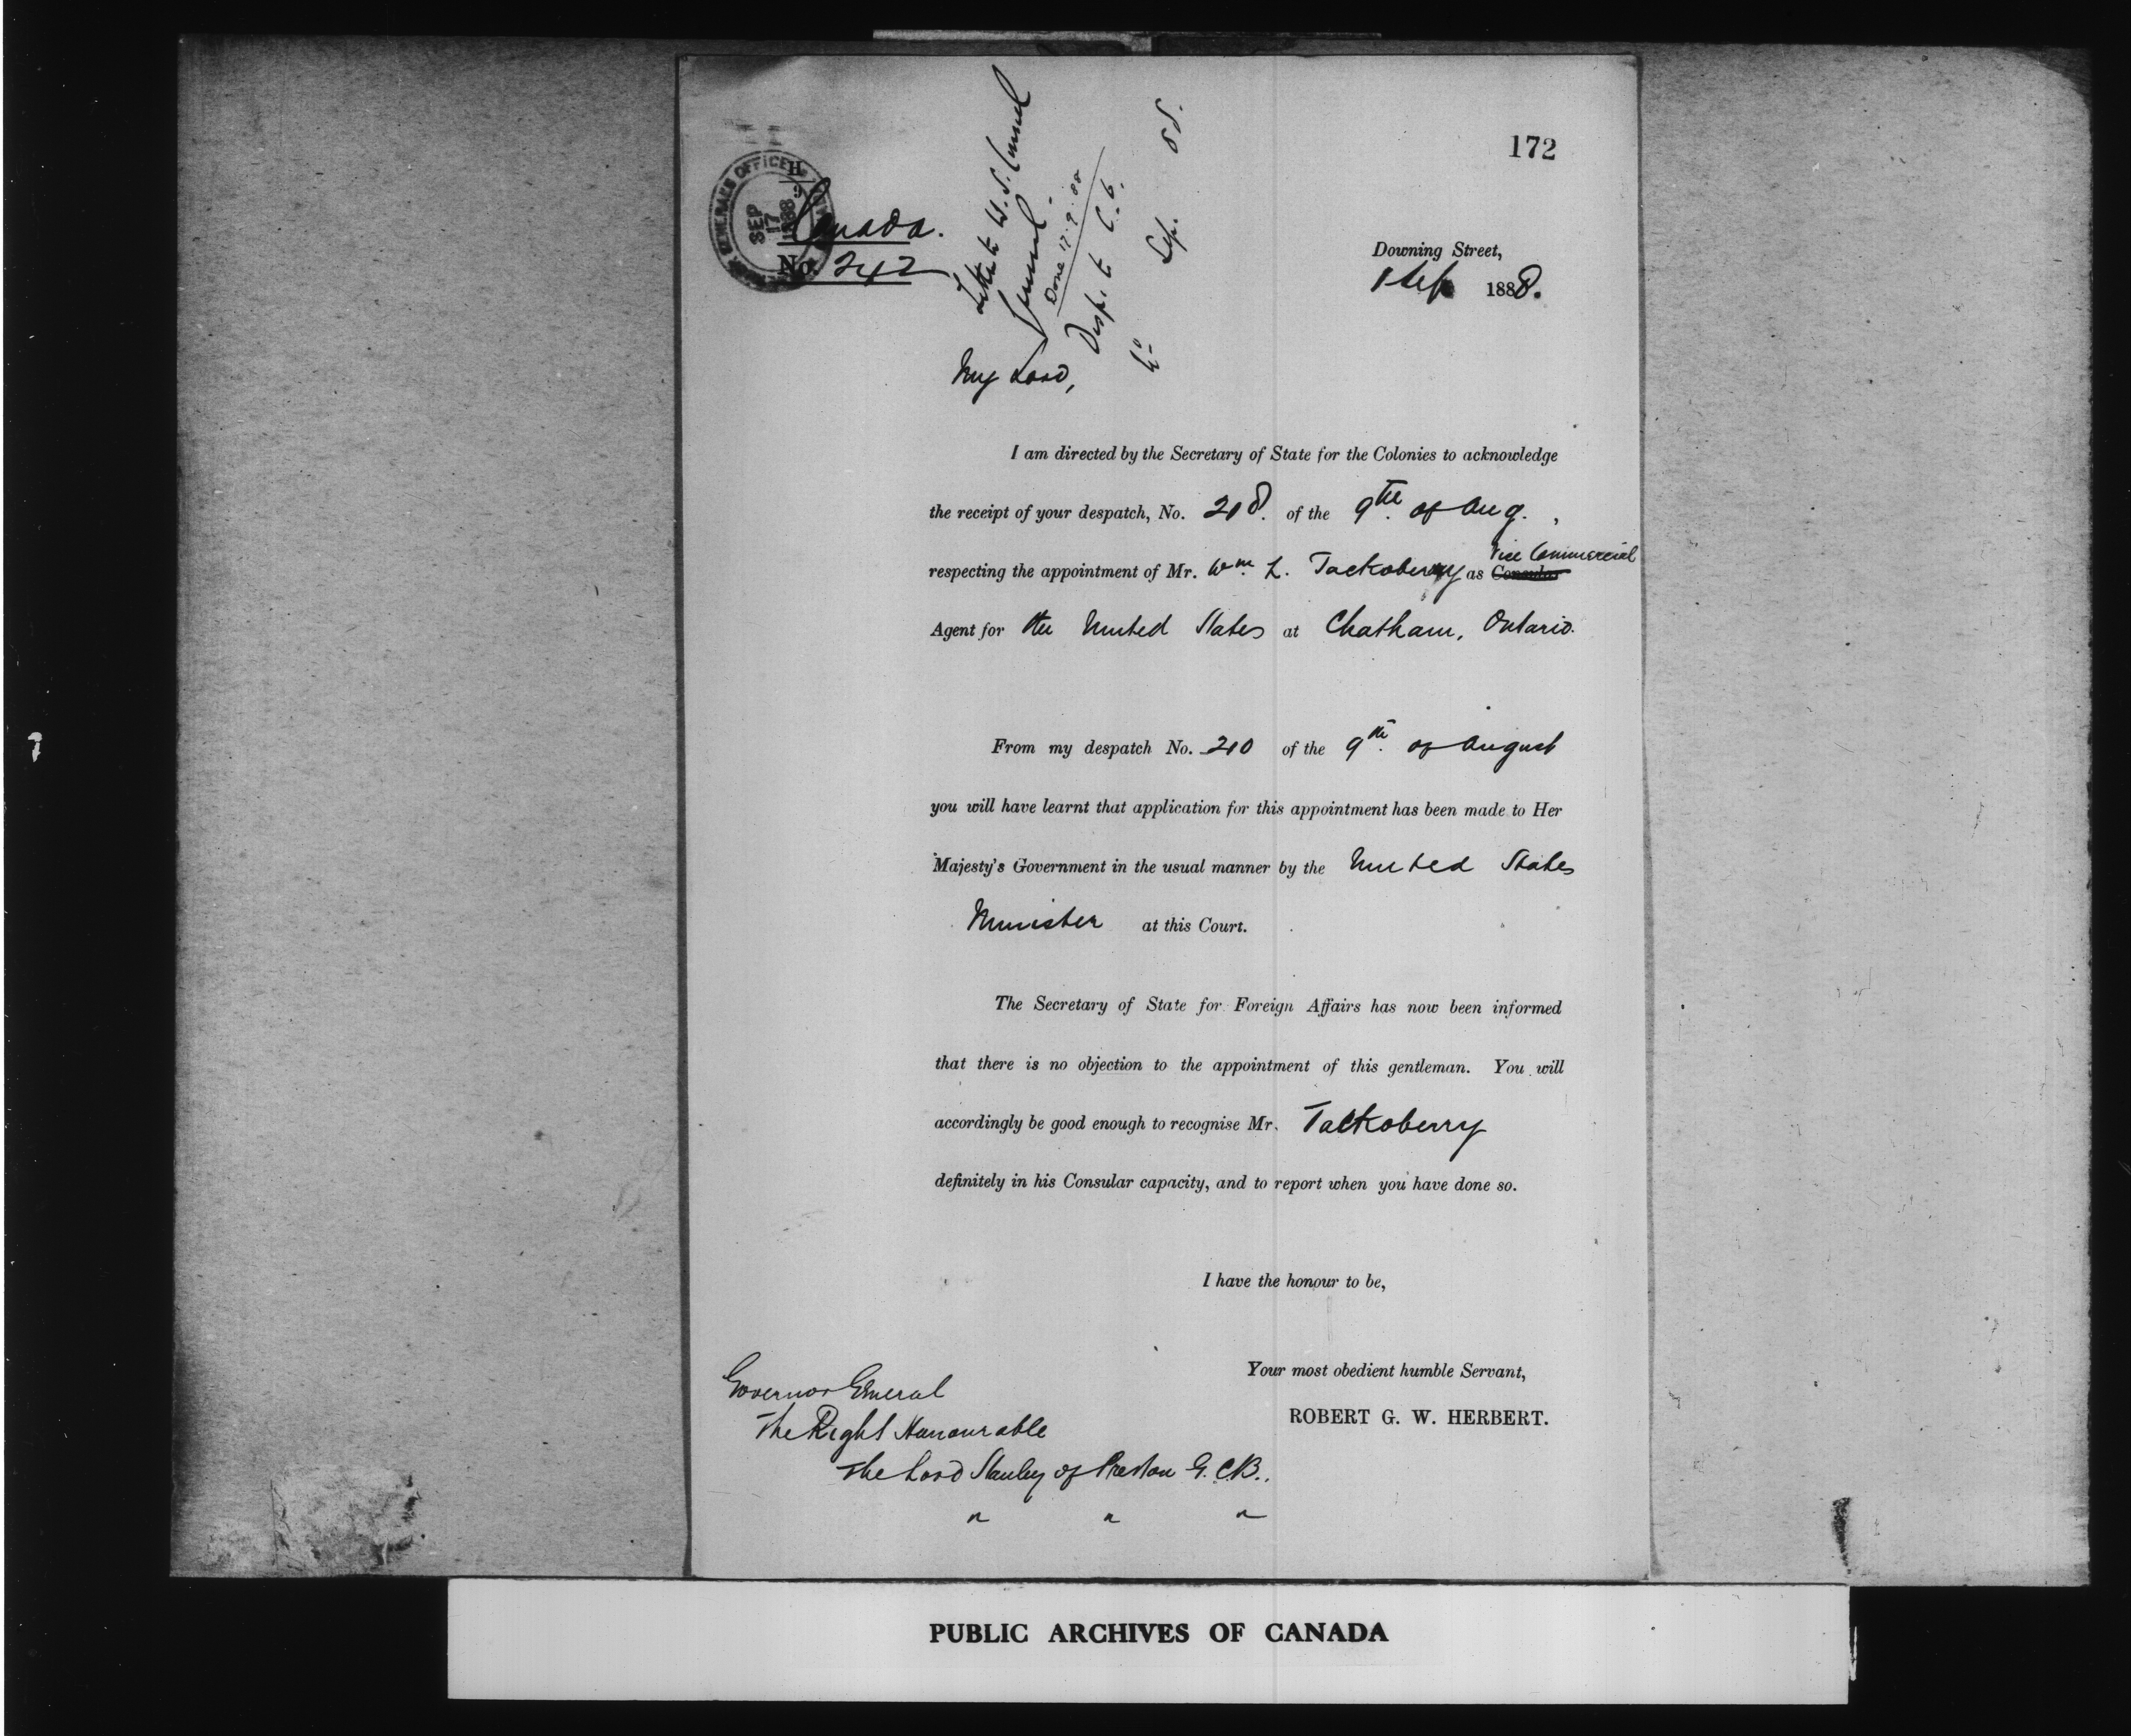 172
GOVERNOR GENERALS OFFICE
SEP
17
1888
H
Canada.
No. 242
Letter to U.S. Consul
General.
Done 17.9.88
Desp. to C.O.
Sep. 88.
Downing Street,
1 Sep 1888.
My Lord,
I am directed by the Secretary of State for the Colonies to acknowledge
the receipt of your despatch, No. 218. of the 9th of Aug. ,
Vice Commercial
respecting the appointment of Mr. Wm. L. Tackoberry as Consular
Agent for the United States at Chatham, Ontario.
From my despatch No. 210 of the 9th. of August
you will have learnt that application for this appointment has been made to Her
Majesty's Government in the usual manner by the United States
Minister at this Court.
The Secretary of State for Foreign Affairs has now been informed
that there is no objection to the appointment of this gentleman. You will
accordingly be good enough to recognise Mr. Tackoberry
definitely in his Consular capacity, and to report when you have done so.
I have the honour to be,
Your most obedient humble Servant,
ROBERT G. W. HERBERT.
Governor General
The Right Honourable
The Lord Stanley of Preston G.C.B.,
" " "
PUBLIC ARCHIVES OF CANADA